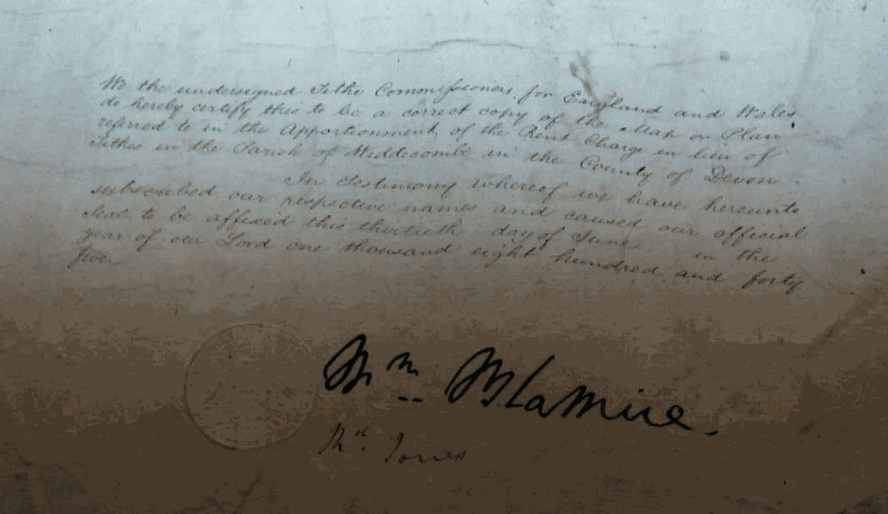 We the undersigned Tithe Commissioners for England and Wales
do hereby certify this to be a correct copy of the Map or Plan
referred to in the Apportionment of the Rent Charge in lieu of
Tithes in the Parish of Widdecombe in the County of Devon.
In Testimony whereof we have hereunto
subscribed our respective names and caused our official
Seal to be affixed this thirtieth day of June in the
year of our Lord one thousand eight hundred and forty
five.
Wm Blamire.
Rd Jones